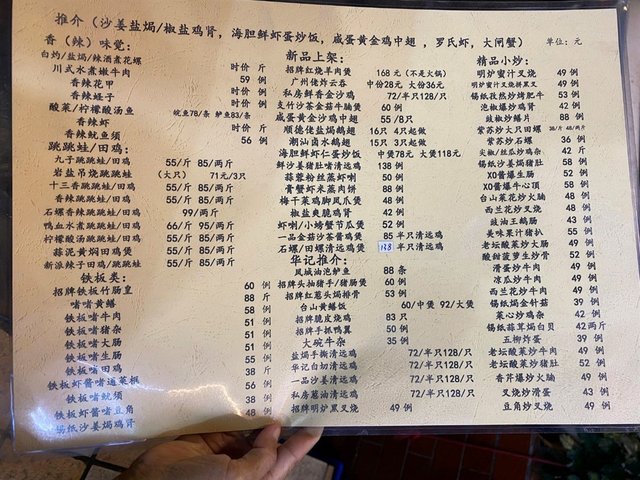 推介（沙姜盐焗/椒盐鸡肾，海胆鲜虾蛋炒饭，咸蛋黄金鸡中翅，罗氏虾，大闸蟹）
单位：元
香（辣）味觉：
白灼/盐焗/辣酒煮花螺 时价 斤
川式水煮嫩牛肉 59 例
香辣花甲 时价 斤
香辣蛏子 时价 斤
酸菜/柠檬酸汤鱼 鲩鱼78/条 鲈鱼83/条
香辣虾 时价 斤
香辣鱿鱼须 56 例
跳跳蛙/田鸡：
九子跳跳蛙/田鸡 55/斤 85/两斤
岩盐吊烧跳跳蛙 （大只） 71元/3只
十三香跳跳蛙/田鸡 55/斤 85/两斤
香辣跳跳蛙/田鸡 55/斤 85/两斤
石螺香辣跳跳蛙/田鸡 99/两斤
鸭血水煮跳跳蛙/田鸡 66/斤 95/两斤
柠檬酸汤跳跳蛙/田鸡 55/斤 85/两斤
蒜泥黄焖田鸡煲 55/斤 85/两斤
新派辣子田鸡/跳跳蛙 55/斤 85/两斤
铁板类：
招牌铁板竹肠皇 60 例
啫啫黄鳝 88 斤
铁板啫牛肉 58 例
铁板啫猪杂 51 例
铁板啫大肠 51 例
铁板啫生肠 51 例
铁板啫田鸡 55 例
铁板虾酱啫通菜梗 38 斤
铁板啫鱿须 56 例
铁板虾酱啫豆角 38 例
锡纸沙姜焗鸡肾 48 例
新品上架：
招牌红烧羊肉煲 168 元（不是火锅）
广州佬炸云吞 中份28元 大份36元
私房鲜香金沙鸡 72/半只128/只
支竹沙茶金菇牛腩煲 60 例
咸蛋黄金鸡中翅 55 /8只
顺德佬盐焗鹅翅 16只 4只起做
潮汕卤水鹅翅 15只 3只起做
海胆鲜虾仁蛋炒饭 中煲78元 大煲118元
鲜沙姜猪肚啫清远鸡 138 例
蒜蓉粉丝蒸虾喇 50 例
膏蟹虾米蒸肉饼 88 例
梅干菜鸡脚凤爪煲 48 例
椒盐爽脆鸡肾 42 例
虾喇/小螃蟹节瓜煲 52 例
一品金菇沙茶酱鸡煲 85 半只清远鸡
石螺/田螺清远鸡煲 128 半只清远鸡
华记推介：
凤城油泡鲈鱼 88 条
招牌头抽猪手/猪肠煲 60 例
招牌红葱头焗排骨 53 例
台山黄鳝饭 60/中煲 92/大煲
招牌脆皮烧鸡 83 只
招牌手抓鸭翼 50 例
大碗牛杂 35 例
盐焗手撕清远鸡 72/半只128/只
华记白切清远鸡 72/半只128/只
一品沙姜清远鸡 72/半只128/只
私房葱油清远鸡 72/半只128/只
招牌明炉黑叉烧 49 例
精品小炒：
明炉蜜汁叉烧 49 例
明炉蜜汁叉烧拼黑叉 49 例
锡纸孜然炒烤肥牛 53 例
泡椒爆炒鸡胃 42 例
豉椒炒鳝片 88 例
紫苏炒大只田螺 38/斤 48/两斤
紫苏炒石螺 36 例
尖椒/丝瓜炒鸡杂 42 斤
锡纸沙姜焗猪肚 58 例
XO酱爆生肠 52 例
XO酱爆牛心顶 58 例
台山菜花炒火腩 48 例
西兰花炒叉烧 48 例
豉油王鹅肠 43 例
美味果汁猪扒 55 例
老坛酸菜炒大肠 49 例
酸甜菠萝生炒骨 52 例
滑蛋炒牛肉 49 例
凉瓜炒牛肉 49 例
西兰花炒牛肉 49 例
锡纸焗金针菇 39 例
菜心炒鸡杂 43 例
锡纸蒜茸焗白贝 42 两斤
五柳炸蛋 39 例
老坛酸菜炒牛肉 49 例
老坛酸菜炒猪肚 52 例
香芹爆炒火腩 49 例
叉烧炒滑蛋 43 例
豆角炒叉烧 49 例